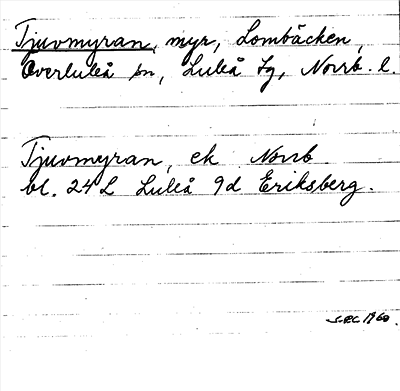 Tjuvmyran, myr, Lombäcken,
Överluleå sn, Luleå tg, Norrb. l.
Tjuvmyran, ek Norrb.
bl. 24 L Luleå 9d Eriksberg.